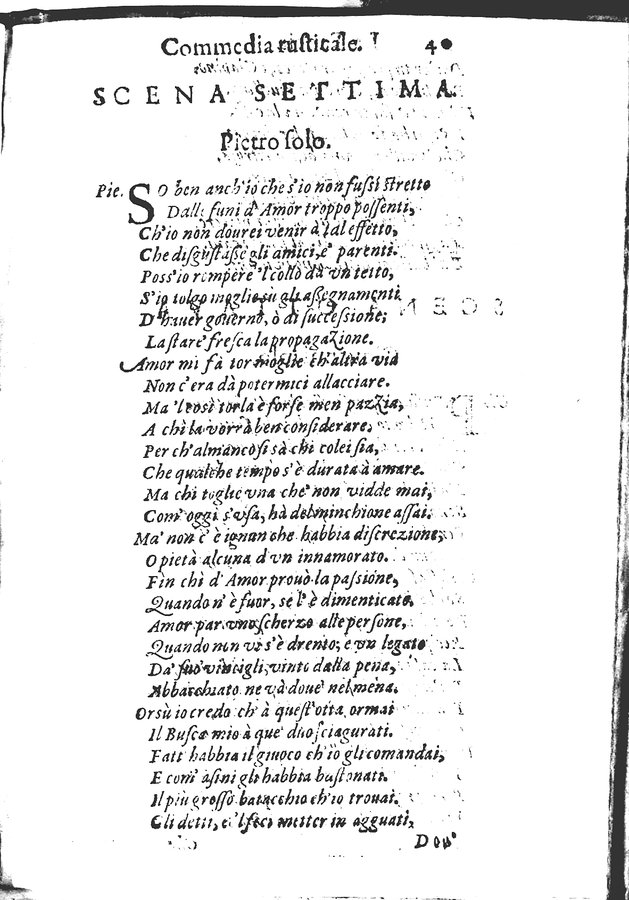 Commedia rusticale. 40
SCENA SETTIMA.
Pietro solo.
Pie. SO ben anch'io che s'io non fussi stretto
Dalle funi d'Amor troppo possenti,
Ch'io non dourei venir à tal effetto,
Che disgustasse gli amici, e' parenti.
Poss'io rompere 'l collo da vn tetto,
S'io tolgo moglie su gli assegnamenti
D'hauer gouerno, ò di successione;
Lastare' fresca la propagazione.
Amor mi fà tor moglie ch'altra via
Non c'era dà potermici allacciare.
Ma 'l così torla è forse men pazzia,
A chi la vorrà ben considerare,
Per ch'almanco si sà chi colei sia,
Che qualche tempo s'è durata à amare.
Ma chi toglie vna che non vidde mai,
Com' oggi s'vsa, hà del minchione assai.
Ma' non c'è ignun che habbia discrezione,
O pietà alcuna d'vn innamorato.
Fin chi d'Amor prouò la passione,
Quando n'è fuor, se l'è dimenticato.
Amor par vno scherzo alle persone,
Quando non vi s'è drento; e vn legato
Da' suo' vincigli, vinto dalla pena,
Abbacchiato ne và doue' nel mena.
Orsù io credo ch'à quest'otta ormai
Il Busca mio à que' duo sciagurati.
Fatt' habbia il giuoco ch'io gli comandai,
E com' asini gli habbia bastonati.
Il piu grosso batacchio ch'io trouai.
Gli detti, e 'l feci metter in agguati,
Dou'